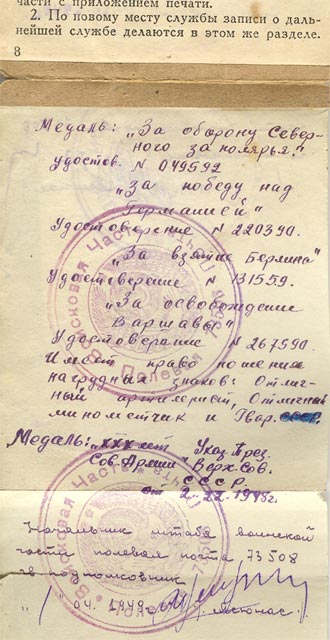 части с приложением печати.
2. По новому месту службы записи о даль-
нейшей службе делаются в этом же разделе.
8
Медаль: „За оборону Север-
ного заполярья."
Удостов. N 049592
„За победу над
Германией"
Удостоверение N 220390.
„За взятие Берлина"
Удостоверение N 131559.
„За освобождение
Варшавы"
Удостоверение N 267590
Имеет право ношения
нагрудных знаков: Отлич-
ный артиллерист, Отличный
минометчик и Гвар.
Медаль: „XXX лет Указ През.
Сов. Армии" Верх Сов.
СССР.
от 2.22.1948г.
Начальник штаба воинской
части полевая почта 73508
гв подполковник
" / " 04. 1949